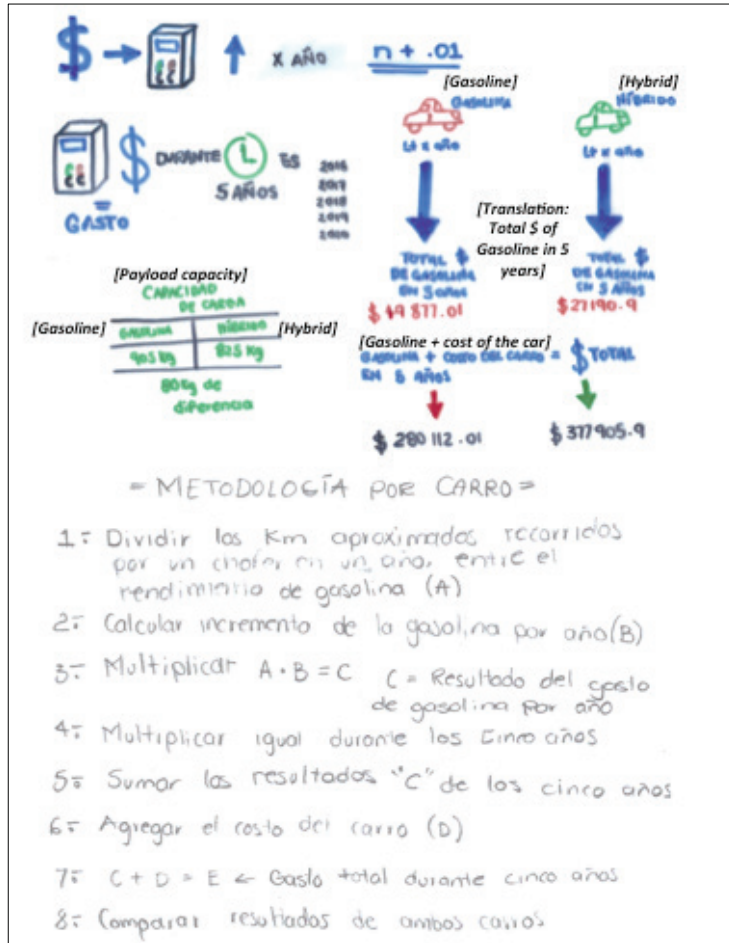 $ → ↑ X AÑO n + .01
[Gasoline]
GASOLINA
Lt x año
[Hybrid]
HÍBRIDO
Lt x año
$ DURANTE 5 AÑOS ES
= GASTO
2016
2017
2018
2019
2020
[Translation:
Total $ of
Gasoline in 5
years]
TOTAL $
DE GASOLINA
EN 5 AÑOS
$ 49 877.01
TOTAL $
DE GASOLINA
EN 5 AÑOS
$27190.9
[Payload capacity]
CAPACIDAD
DE CARGA
[Gasoline] GASOLINA HÍBRIDO [Hybrid]
905 kg 825 kg
80 kg de
diferencia
[Gasoline + cost of the car]
GASOLINA + COSTO DEL CARRO = $ TOTAL
EN 5 AÑOS
$ 280 112.01 $ 377905.9
= METODOLOGÍA POR CARRO =
1: Dividir los Km aproximados recorridos
por un chofer en un año, entre el
rendimiento de gasolina (A)
2: Calcular incremento de la gasolina por año (B)
3: Multiplicar A · B = C C = Resultado del gasto
de gasolina por año
4: Multiplicar igual durante los cinco años
5: Sumar los resultados "C" de los cinco años
6: Agregar el costo del carro (D)
7: C + D = E ← Gasto total durante cinco años
8: Comparar resultados de ambos carros